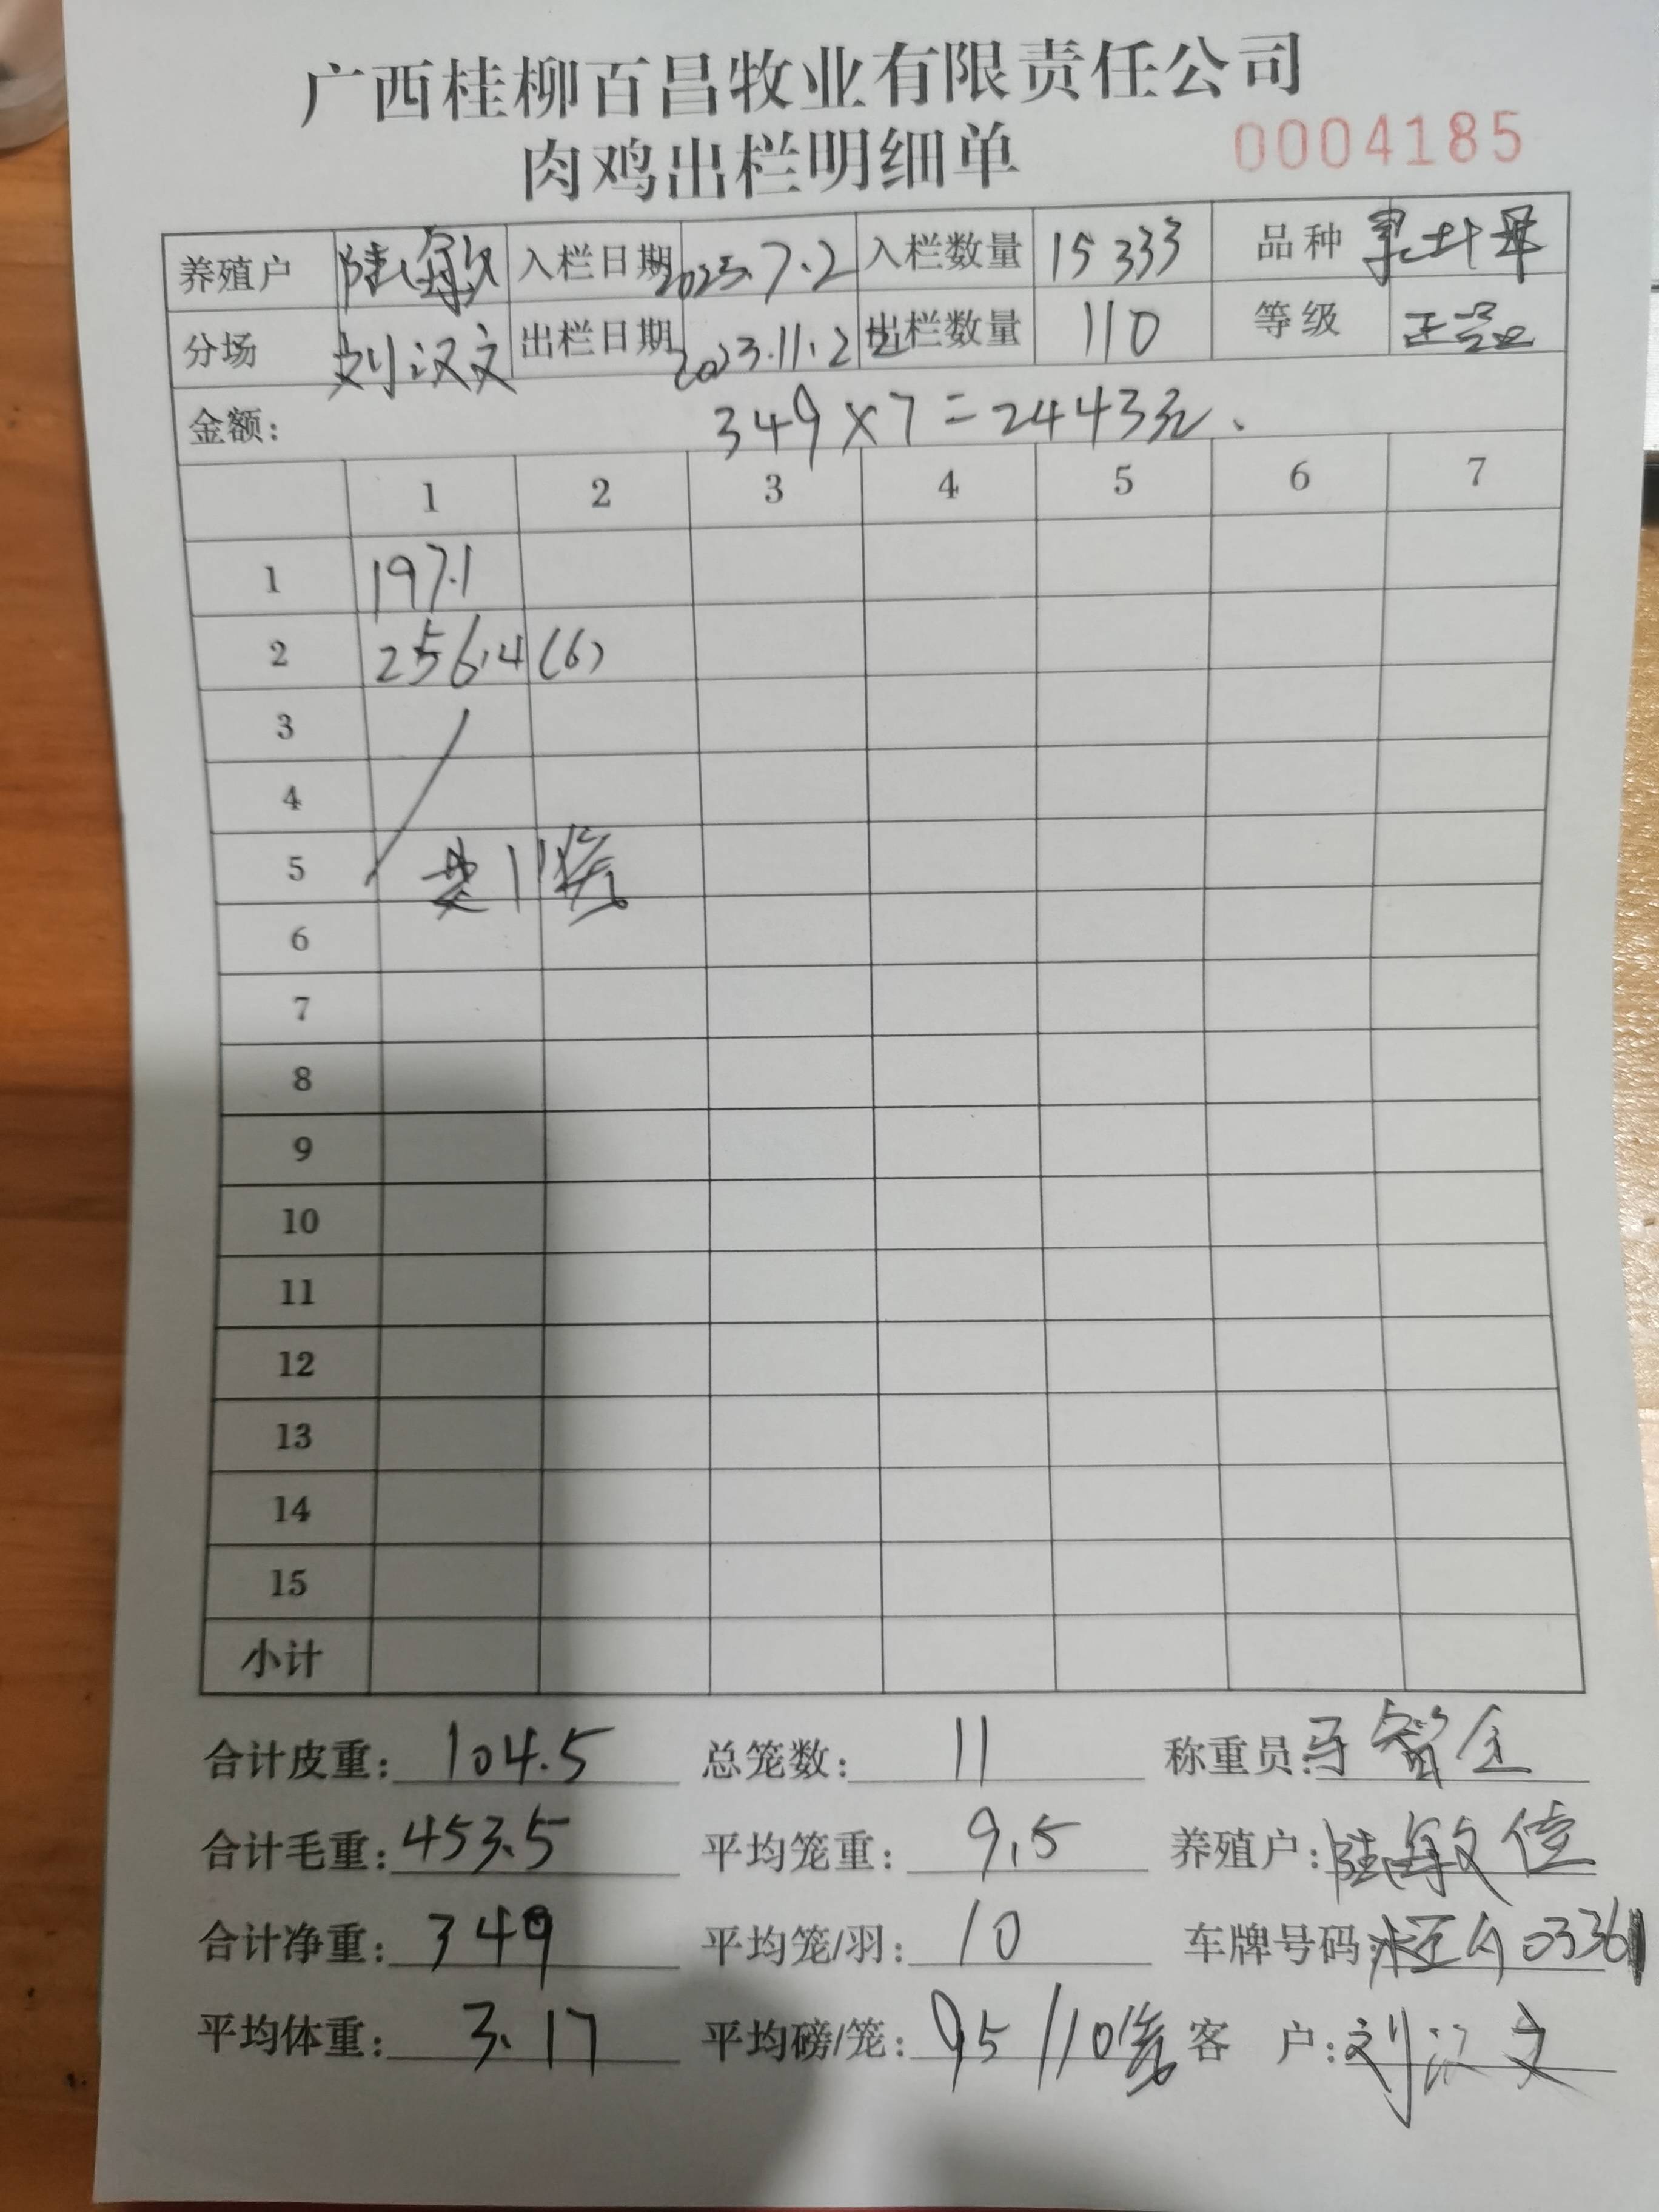 广西桂柳百昌牧业有限责任公司
肉鸡出栏明细单 0004185
养殖户 陆敏 入栏日期 2023.7.2 入栏数量 15333 品种
分场 刘汉文 出栏日期 2023.11.2 出栏数量 110 等级 正品
金额: 349×7=2443元.
1 2 3 4 5 6 7
1 197.1
2 256.4(6)
3
4
5 共11笼
6
7
8
9
10
11
12
13
14
15
小计
合计皮重: 104.5 总笼数: 11 称重员: 马智全
合计毛重: 453.5 平均笼重: 9.5 养殖户: 陆敏
合计净重: 349 平均笼/羽: 10 车牌号码: 桂A0336
平均体重: 3.17 平均磅/笼: 95/10笼 客 户: 刘汉文